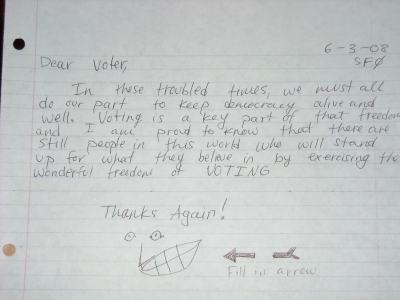 6-3-08
Dear Voter,
SFØ
In these troubled times, we must all
do our part to keep democracy alive and
well. Voting is a key part of that freedom
and I am proud to know that there are
still people in this world who will stand
up for what they believe in by exercising the
wonderful freedom of VOTING
Thanks Again!
Fill in arrow